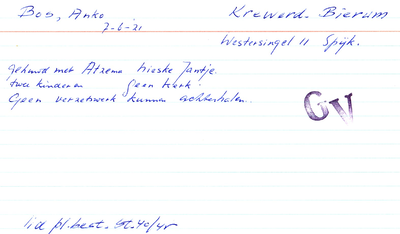 Bos, Anko
Krewerd - Bierum
7-6-'21
Westersingel 11 Spijk.
gehuwd met Atzema Wieske Jantje.
twee kinderen Geen kerk.
Geen verzetswerk kunnen achterhalen.
GV
lid pl. best. St. 40/45